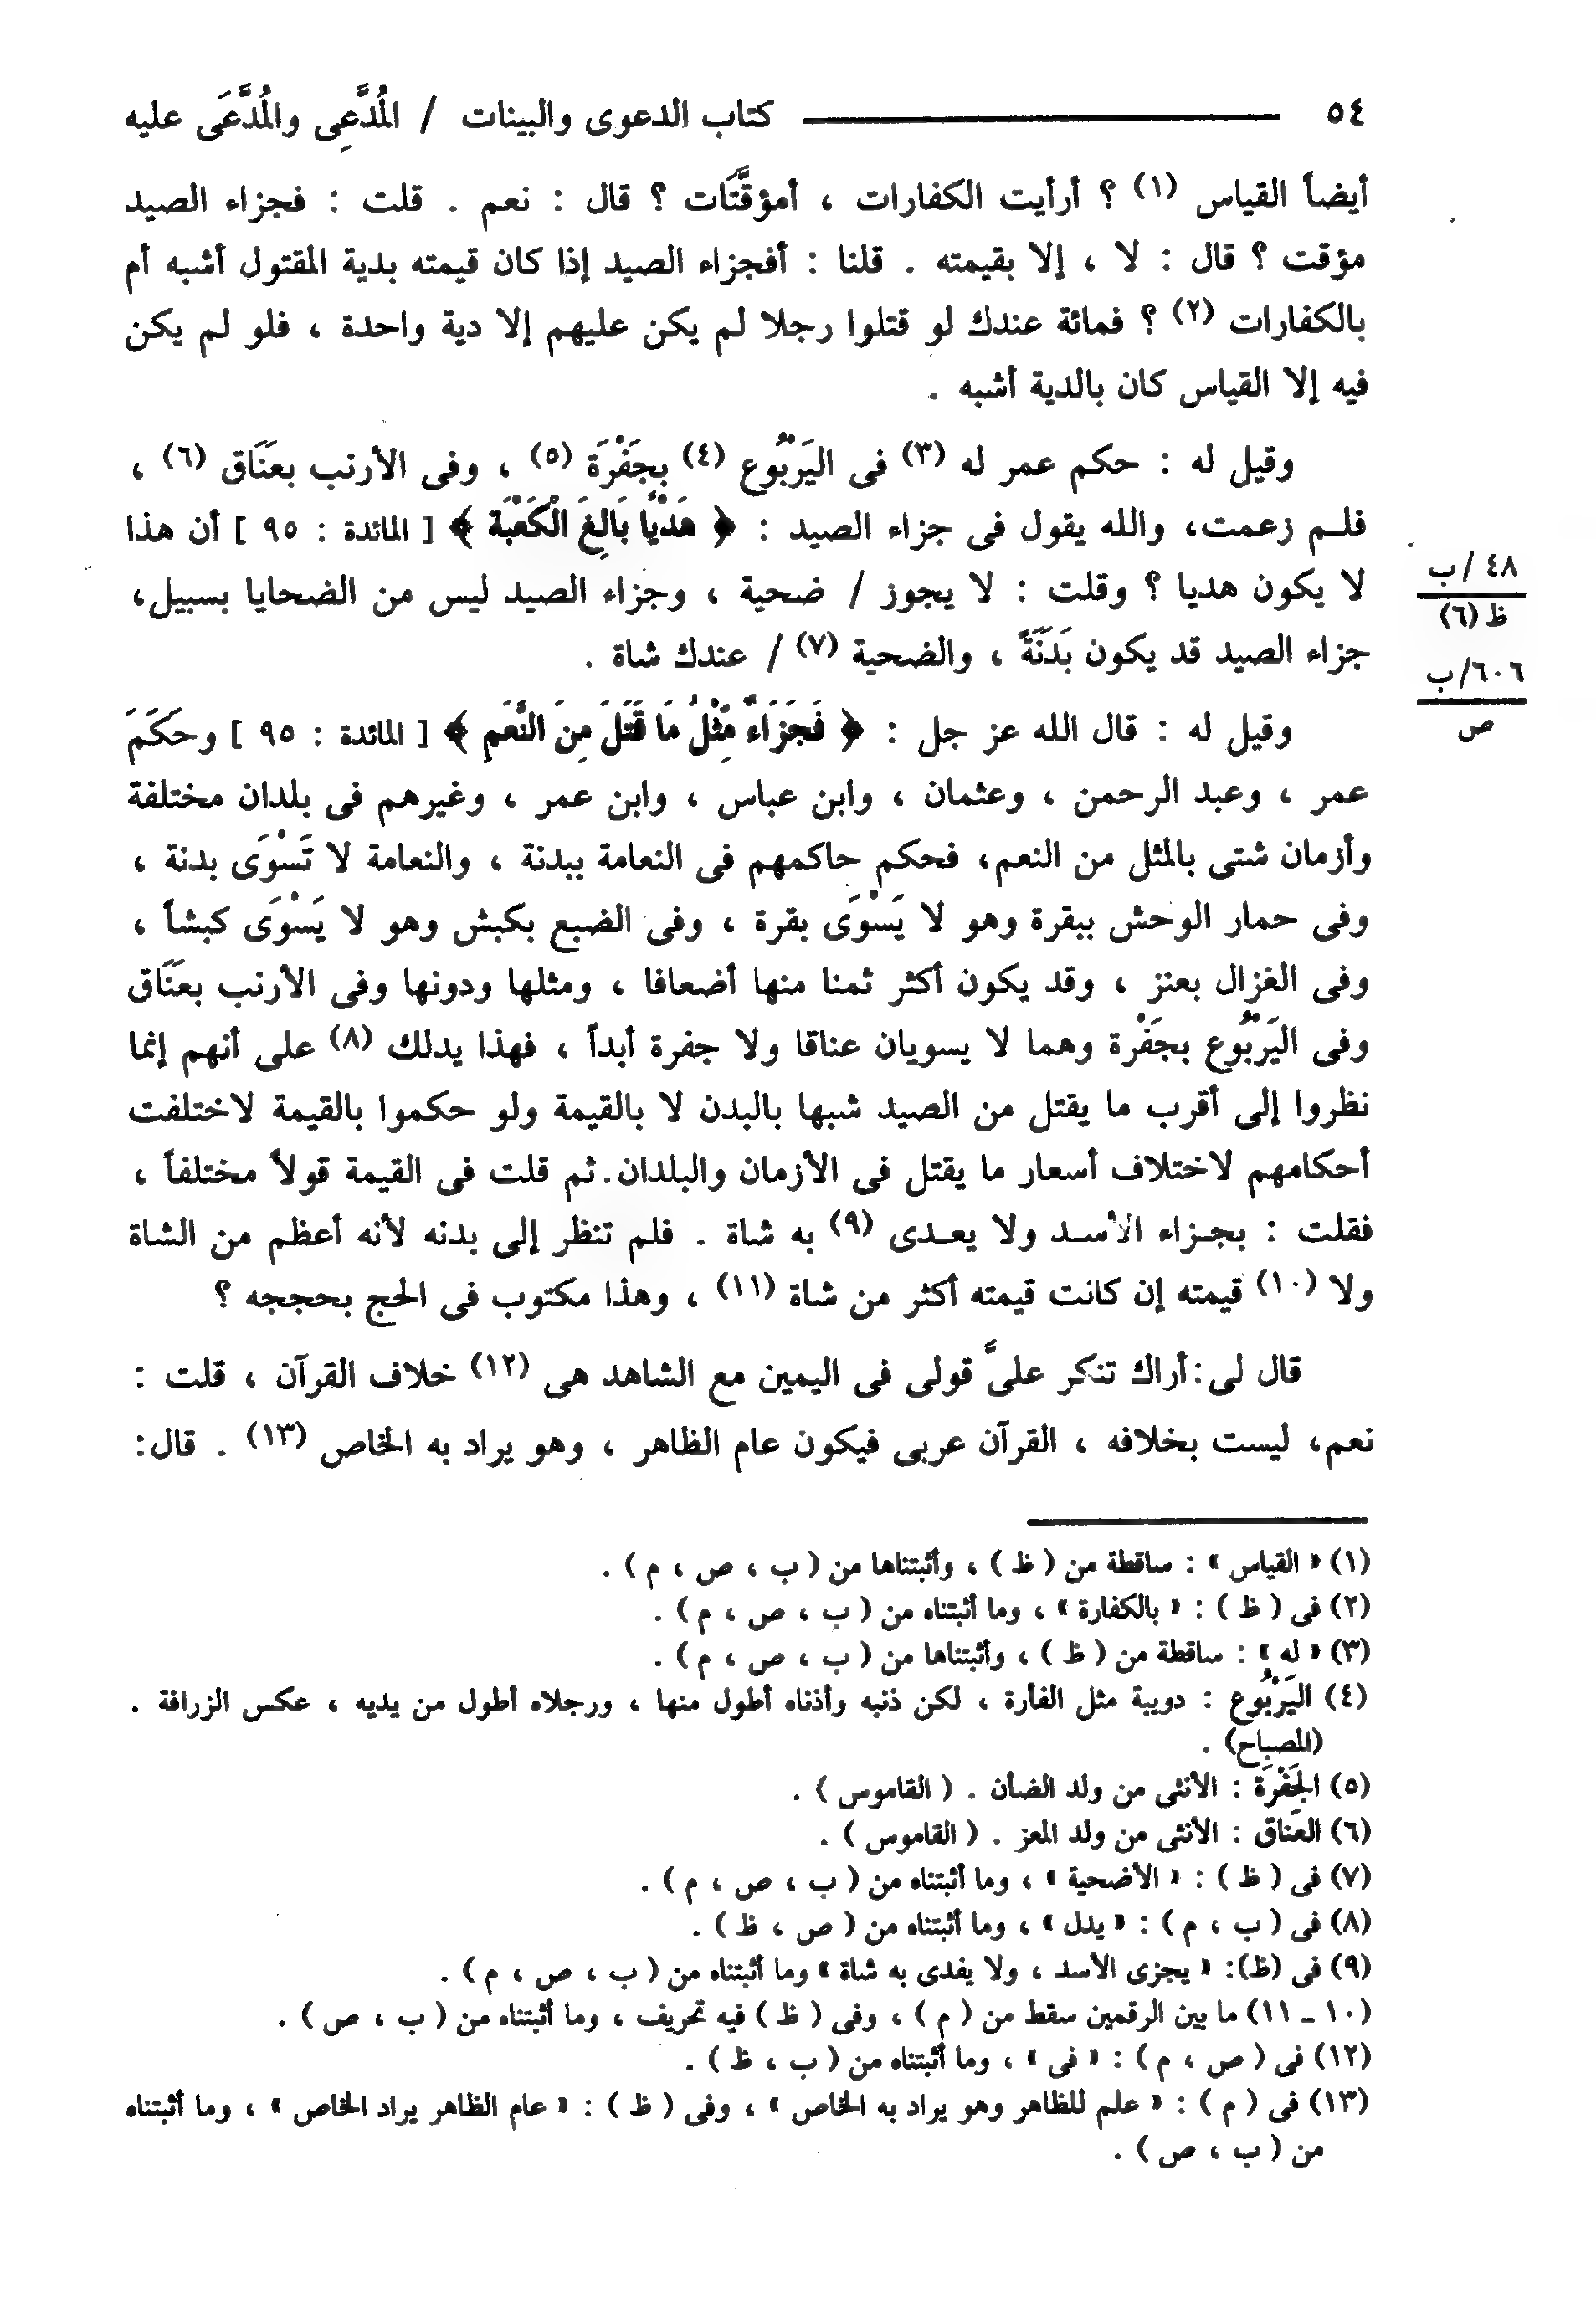 ٥٤ كتاب الدعوى والبينات / المُدَّعِى والمُدَّعَى عليه
أيضاً القياس (١) ؟ أرأيت الكفارات ، أمؤقَّتَات ؟ قال : نعم . قلت : فجزاء الصيد
مؤقت ؟ قال : لا ، إلا بقيمته . قلنا : أفجزاء الصيد إذا كان قيمته بدية المقتول أشبه أم
بالكفارات (٢) ؟ فمائة عندك لو قتلوا رجلا لم يكن عليهم إلا دية واحدة ، فلو لم يكن
فيه إلا القياس كان بالدية أشبه .
وقيل له : حكم عمر له (٣) فى اليَرْبُوع (٤) بجَفْرَة (٥) ، وفى الأرنب بعَنَاق (٦) ،
فلـم زعمت، والله يقول فى جزاء الصيد : ﴿ هَدْيًا بَالِغَ الْكَعْبَة ﴾ [ المائدة : ٩٥ ] أن هذا
لا يكون هديا ؟ وقلت : لا يجوز / ضحية ، وجزاء الصيد ليس من الضحايا بسبيل،
جزاء الصيد قد يكون بَدَنَةً ، والضحية (٧) / عندك شاة .
٤٨ /ب
ظ (٦)
٦٠٦/ب
ص
وقيل له : قال الله عز جل : ﴿ فَجَزَاءٌ مِّثْلُ مَا قَتَلَ مِنَ النَّعَمِ ﴾ [ المائدة : ٩٥ ] وحَكَمَ
عمر ، وعبد الرحمن ، وعثمان ، وابن عباس ، وابن عمر ، وغيرهم فى بلدان مختلفة
وأزمان شتى بالمثل من النعم، فحكم حاكمهم فى النعامة ببدنة ، والنعامة لا تَسْوَى بدنة ،
وفى حمار الوحش ببقرة وهو لا يَسْوَى بقرة ، وفى الضبع بكبش وهو لا يَسْوَى كبشاً ،
وفى الغزال بعنز ، وقد يكون أكثر ثمنا منها أضعافا ، ومثلها ودونها وفى الأرنب بعَنَاق
وفى اليَرْبُوع بجَفْرة وهما لا يسويان عناقا ولا جفرة أبداً ، فهذا يدلك (٨) على أنهم إنما
نظروا إلى أقرب ما يقتل من الصيد شبها بالبدن لا بالقيمة ولو حكموا بالقيمة لاختلفت
أحكامهم لاختلاف أسعار ما يقتل فى الأزمان والبلدان. ثم قلت فى القيمة قولاً مختلفاً ،
فقلت : بجـزاء الأسـد ولا يعـدى (٩) به شاة . فلم تنظر إلى بدنه لأنه أعظم من الشاة
ولا (١٠) قيمته إن كانت قيمته أكثر من شاة (١١) ، وهذا مكتوب فى الحج بحججه ؟
قال لى : أراك تنكر علىَّ قولى فى اليمين مع الشاهد هى (١٢) خلاف القرآن ، قلت :
نعم، ليست بخلافه ، القرآن عربى فيكون عام الظاهر ، وهو يراد به الخاص (١٣) . قال:
(١) « القياس » : ساقطة من ( ظ ) ، وأثبتناها من ( ب ، ص ، م ) .
(٢) فى ( ظ ) : « بالكفارة » ، وما أثبتناه من ( ب ، ص ، م ) .
(٣) « له » : ساقطة من ( ظ ) ، وأثبتناها من ( ب ، ص ، م ) .
(٤) اليَرْبُوع : دويبة مثل الفأرة ، لكن ذنبه وأذناه أطول منها ، ورجلاه أطول من يديه ، عكس الزرافة .
(المصباح) .
(٥) الجَفْرَة : الأنثى من ولد الضأن . ( القاموس ) .
(٦) العَناق : الأنثى من ولد المعز . ( القاموس ) .
(٧) فى ( ظ ) : « الأضحية » ، وما أثبتناه من ( ب ، ص ، م ) .
(٨) فى ( ب ، م ) : « يدل » ، وما أثبتناه من ( ص ، ظ ) .
(٩) فى (ظ): « يجزى الأسد ، ولا يفدى به شاة » وما أثبتناه من ( ب ، ص ، م ) .
(١٠ ـ ١١) ما بين الرقمين سقط من ( م ) ، وفى ( ظ ) فيه تحريف ، وما أثبتناه من ( ب ، ص ) .
(١٢) فى ( ص ، م ) : « فى » ، وما أثبتناه من ( ب ، ظ ) .
(١٣) فى ( م ) : « علم للظاهر وهو يراد به الخاص » ، وفى ( ظ ) : « عام الظاهر يراد الخاص » ، وما أثبتناه
من ( ب ، ص ) .